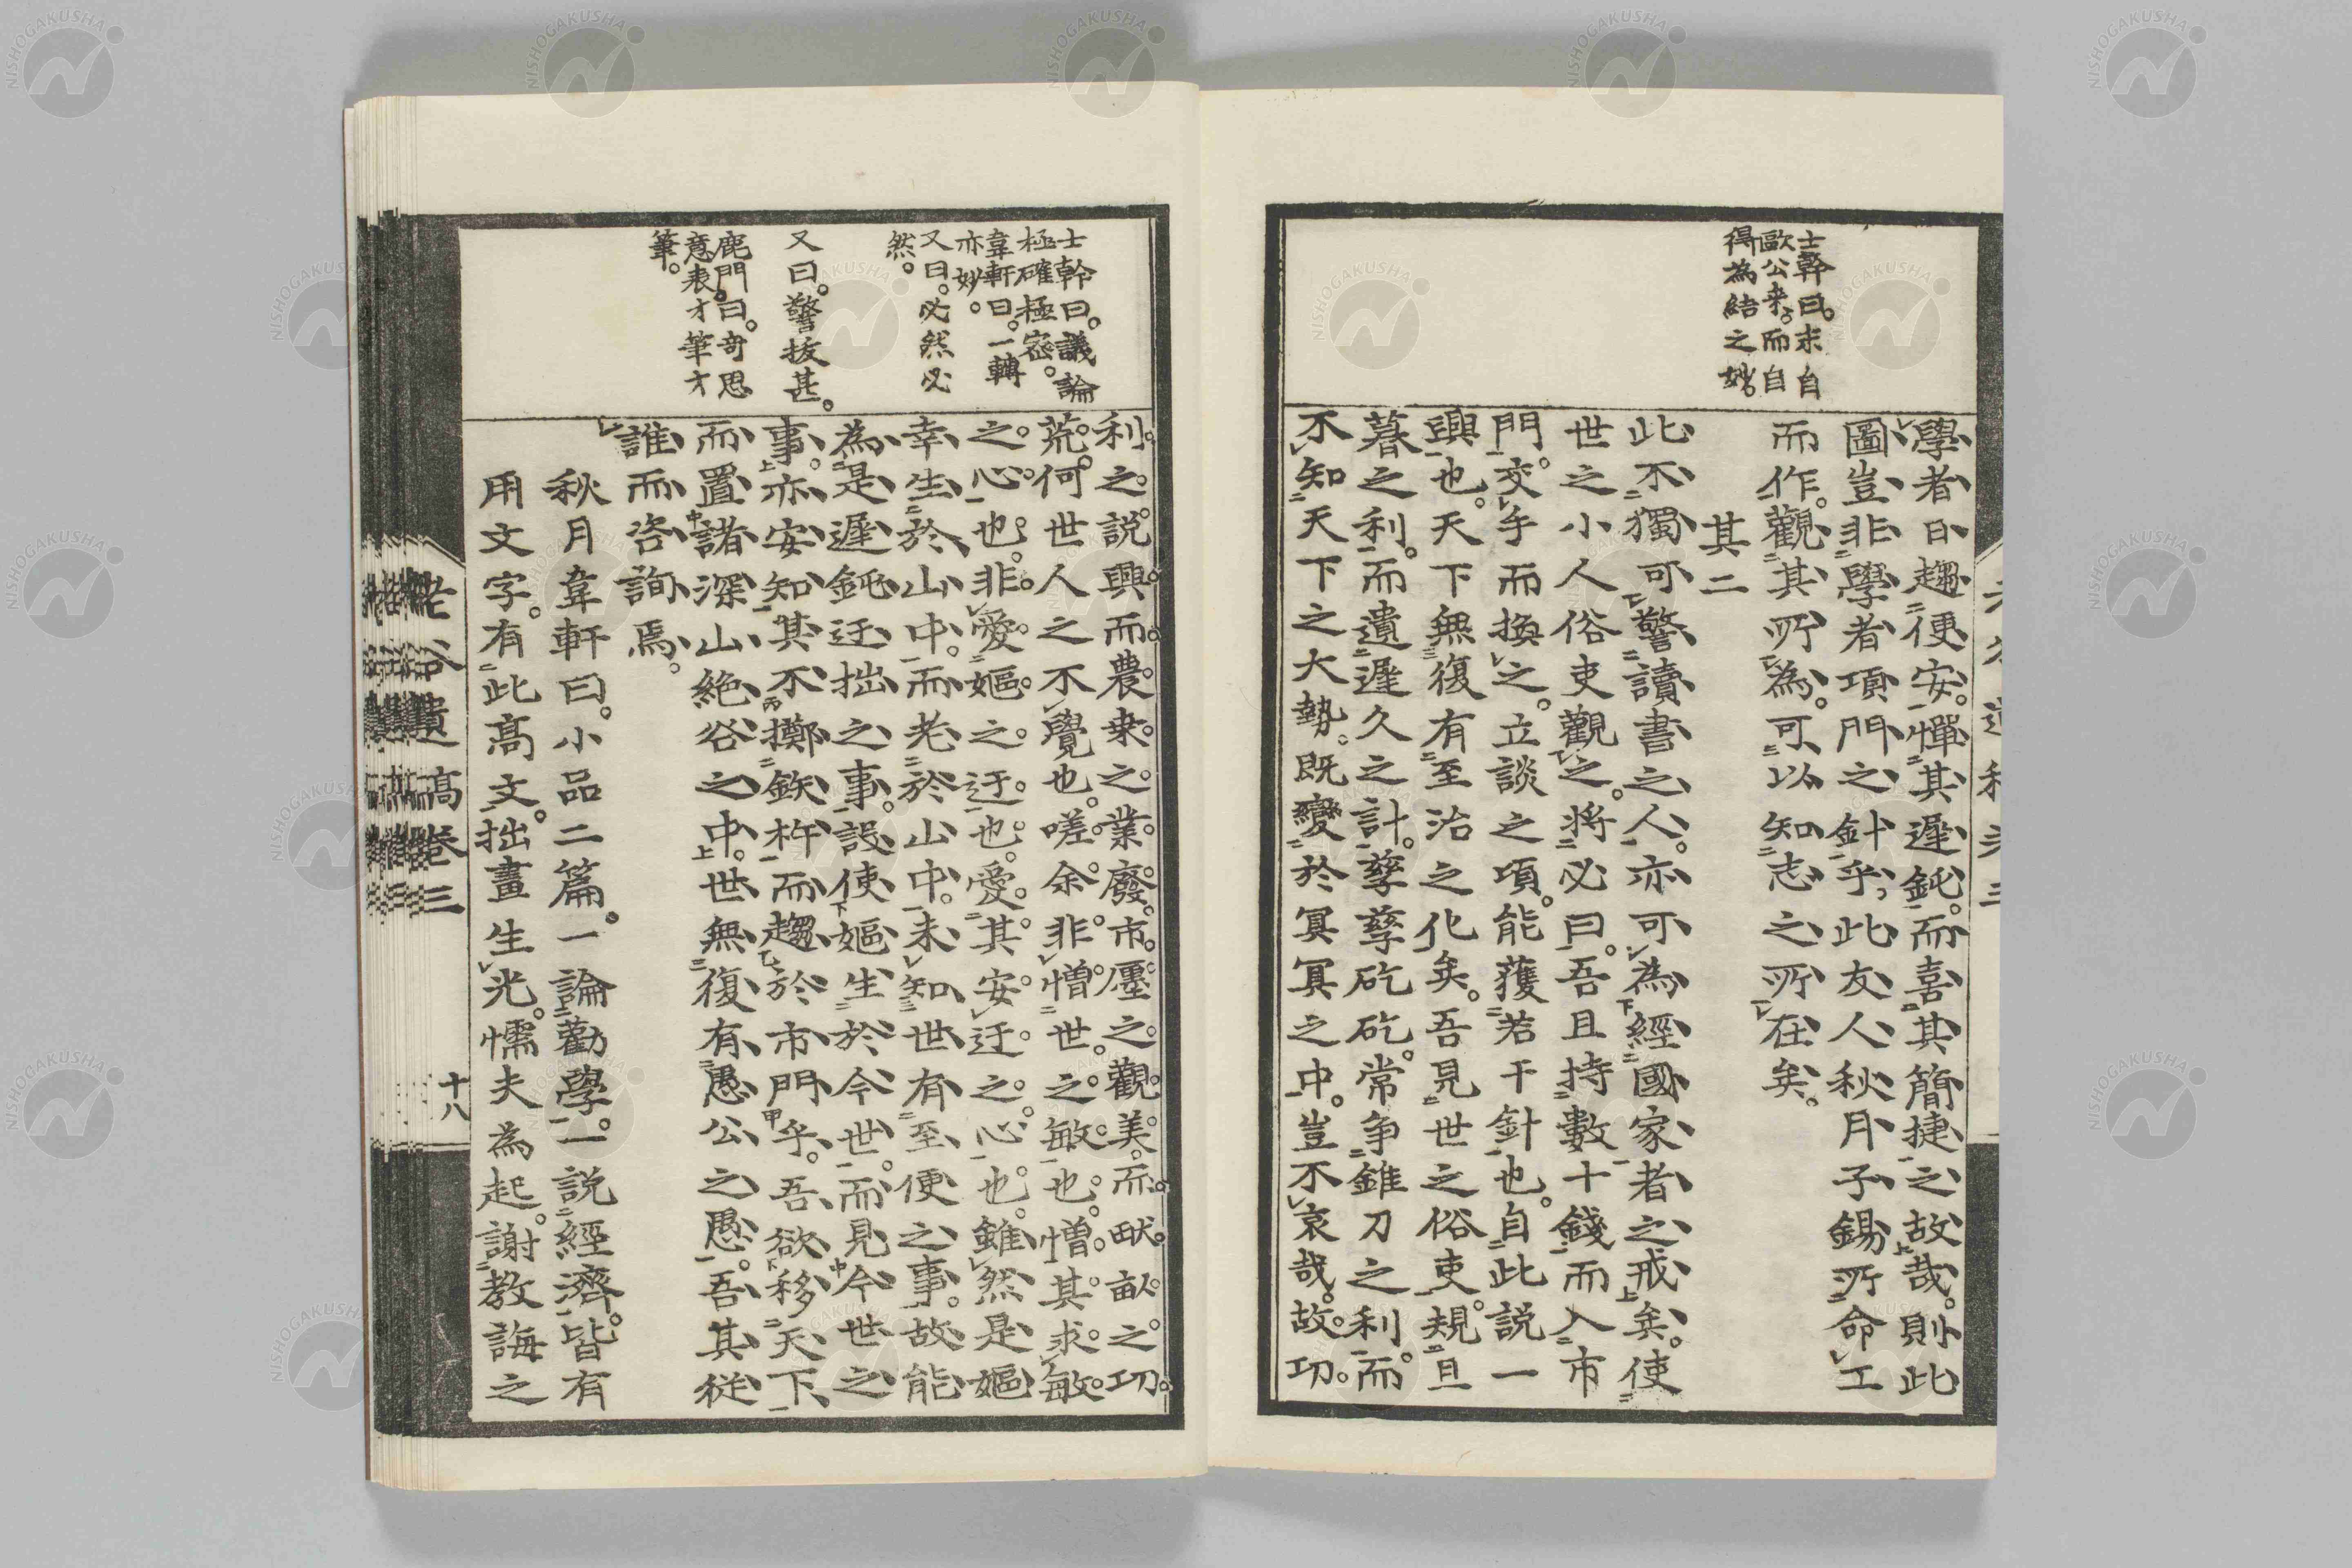 士幹曰。求自
歐公来。而自
得為結之妙。
學者日趨便安。憚其遲鈍。而喜其簡捷之故哉。則此
圖豈非學者項門之針乎。此友人秋月子錫所命工
而作。觀其所為。可以知志之所在矣。
其二
此不獨可警讀書之人。亦可為經國家者之戒矣。使
世之小人俗吏觀之。將必曰。吾且持數十錢而入市
門。交手而換之。立談之項。能獲若干針也。自此説一
興也。天下無復有至治之化矣。吾見世之俗吏。規旦
暮之利。而遺遲久之計。孳孳矻矻。常争錐刀之利。而
不知天下之大勢。既變於冥冥之中。豈不哀哉。故功
士幹曰。議論
極確極密。
韋軒曰。一轉
亦妙。
又曰。必然必
然。
又曰。警抜甚。
鹿門曰。奇思
意表才筆才
筆。
利之説興。而農桒之業廢。市廛之觀美。而畎畝之功
荒。何世人之不覺也。嗟余非憎世之敏也。憎其求敏
之心也。非愛嫗之迂也。愛其安迂之心也。雖然是嫗
幸生於山中。而老於山中。未知世有至便之事。故能
為是遲鈍迂拙之事。設使嫗生於今世。而見今世之
事。亦安知其不擲鉃杵而趨於市門乎。吾欲移天下
而置諸深山絶谷之中。世無復有愚公之愚。吾其從
誰而咨詢焉。
秋月韋軒曰。小品二篇。一論勸學。一説經濟。皆有
用文字。有此高文。拙畫生光。懦夫為起。謝教誨之
老谷遺稿卷三
十八